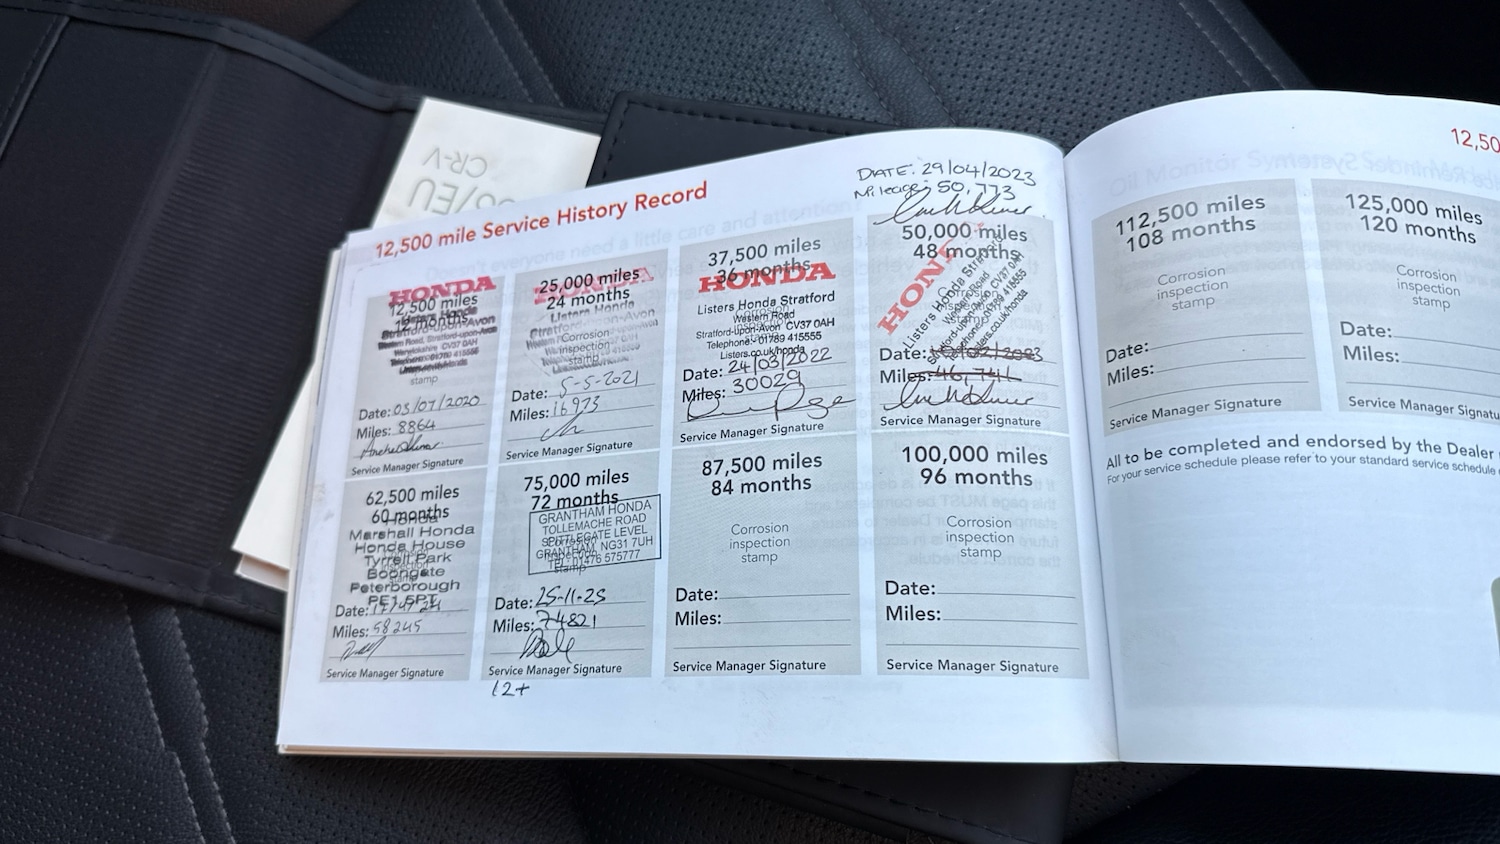 CR-V
12,500 mile Service History Record
DATE: 29/04/2023
Mileage: 50,773
HONDA
12,500 miles
12 months
Listers Honda
Stratford-upon-Avon
Western Road, Stratford-upon-Avon
Warwickshire CV37 0AH
Telephone: 01789 415555
stamp
Date: 03/07/2020
Miles: 8864
Service Manager Signature
HONDA
25,000 miles
24 months
Listers Honda
Stratford-upon-Avon
Corrosion
inspection
stamp
Date: 5-5-2021
Miles: 16973
Service Manager Signature
37,500 miles
36 months
HONDA
Listers Honda Stratford
Western Road
Stratford-upon-Avon CV37 0AH
Telephone: 01789 415555
Listers.co.uk/honda
Date: 24/03/2022
Miles: 30029
Service Manager Signature
50,000 miles
48 months
HONDA
Listers Honda Stratford
Western Road
Stratford-upon-Avon CV37 0AH
Telephone: 01789 415555
Listers.co.uk/honda
Date:
Miles: 46,741
Service Manager Signature
62,500 miles
60 months
Honda
Marshall Honda
Honda House
Tyrrell Park
Boongate
Peterborough
PE1 5PT
Date:
Miles: 58245
Service Manager Signature
75,000 miles
72 months
GRANTHAM HONDA
TOLLEMACHE ROAD
SPITTLEGATE LEVEL
GRANTHAM NG31 7UH
TEL: 01476 575777
stamp
Date: 25-11-25
Miles: 74821
Service Manager Signature
12+
87,500 miles
84 months
Corrosion
inspection
stamp
Date:
Miles:
Service Manager Signature
100,000 miles
96 months
Corrosion
inspection
stamp
Date:
Miles:
Service Manager Signature
12,50
112,500 miles
108 months
Corrosion
inspection
stamp
Date:
Miles:
Service Manager Signature
125,000 miles
120 months
Corrosion
inspection
stamp
Date:
Miles:
Service Manager Signatu
All to be completed and endorsed by the Dealer
For your service schedule please refer to your standard service schedule